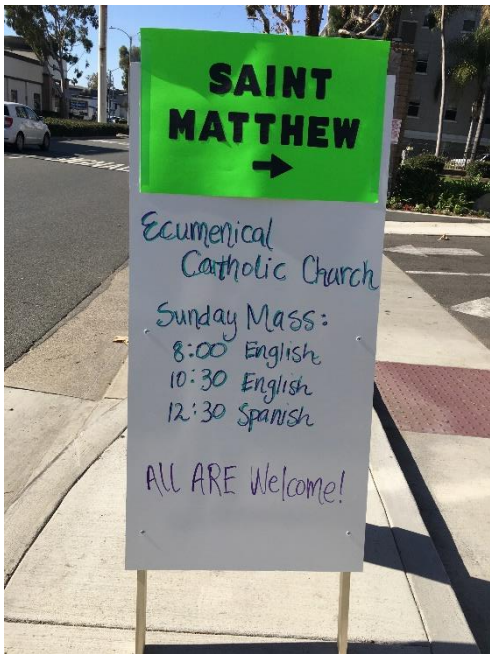 SAINT
MATTHEW
→
Ecumenical
Catholic Church
Sunday Mass:
8:00 English
10:30 English
12:30 Spanish
All ARE Welcome!